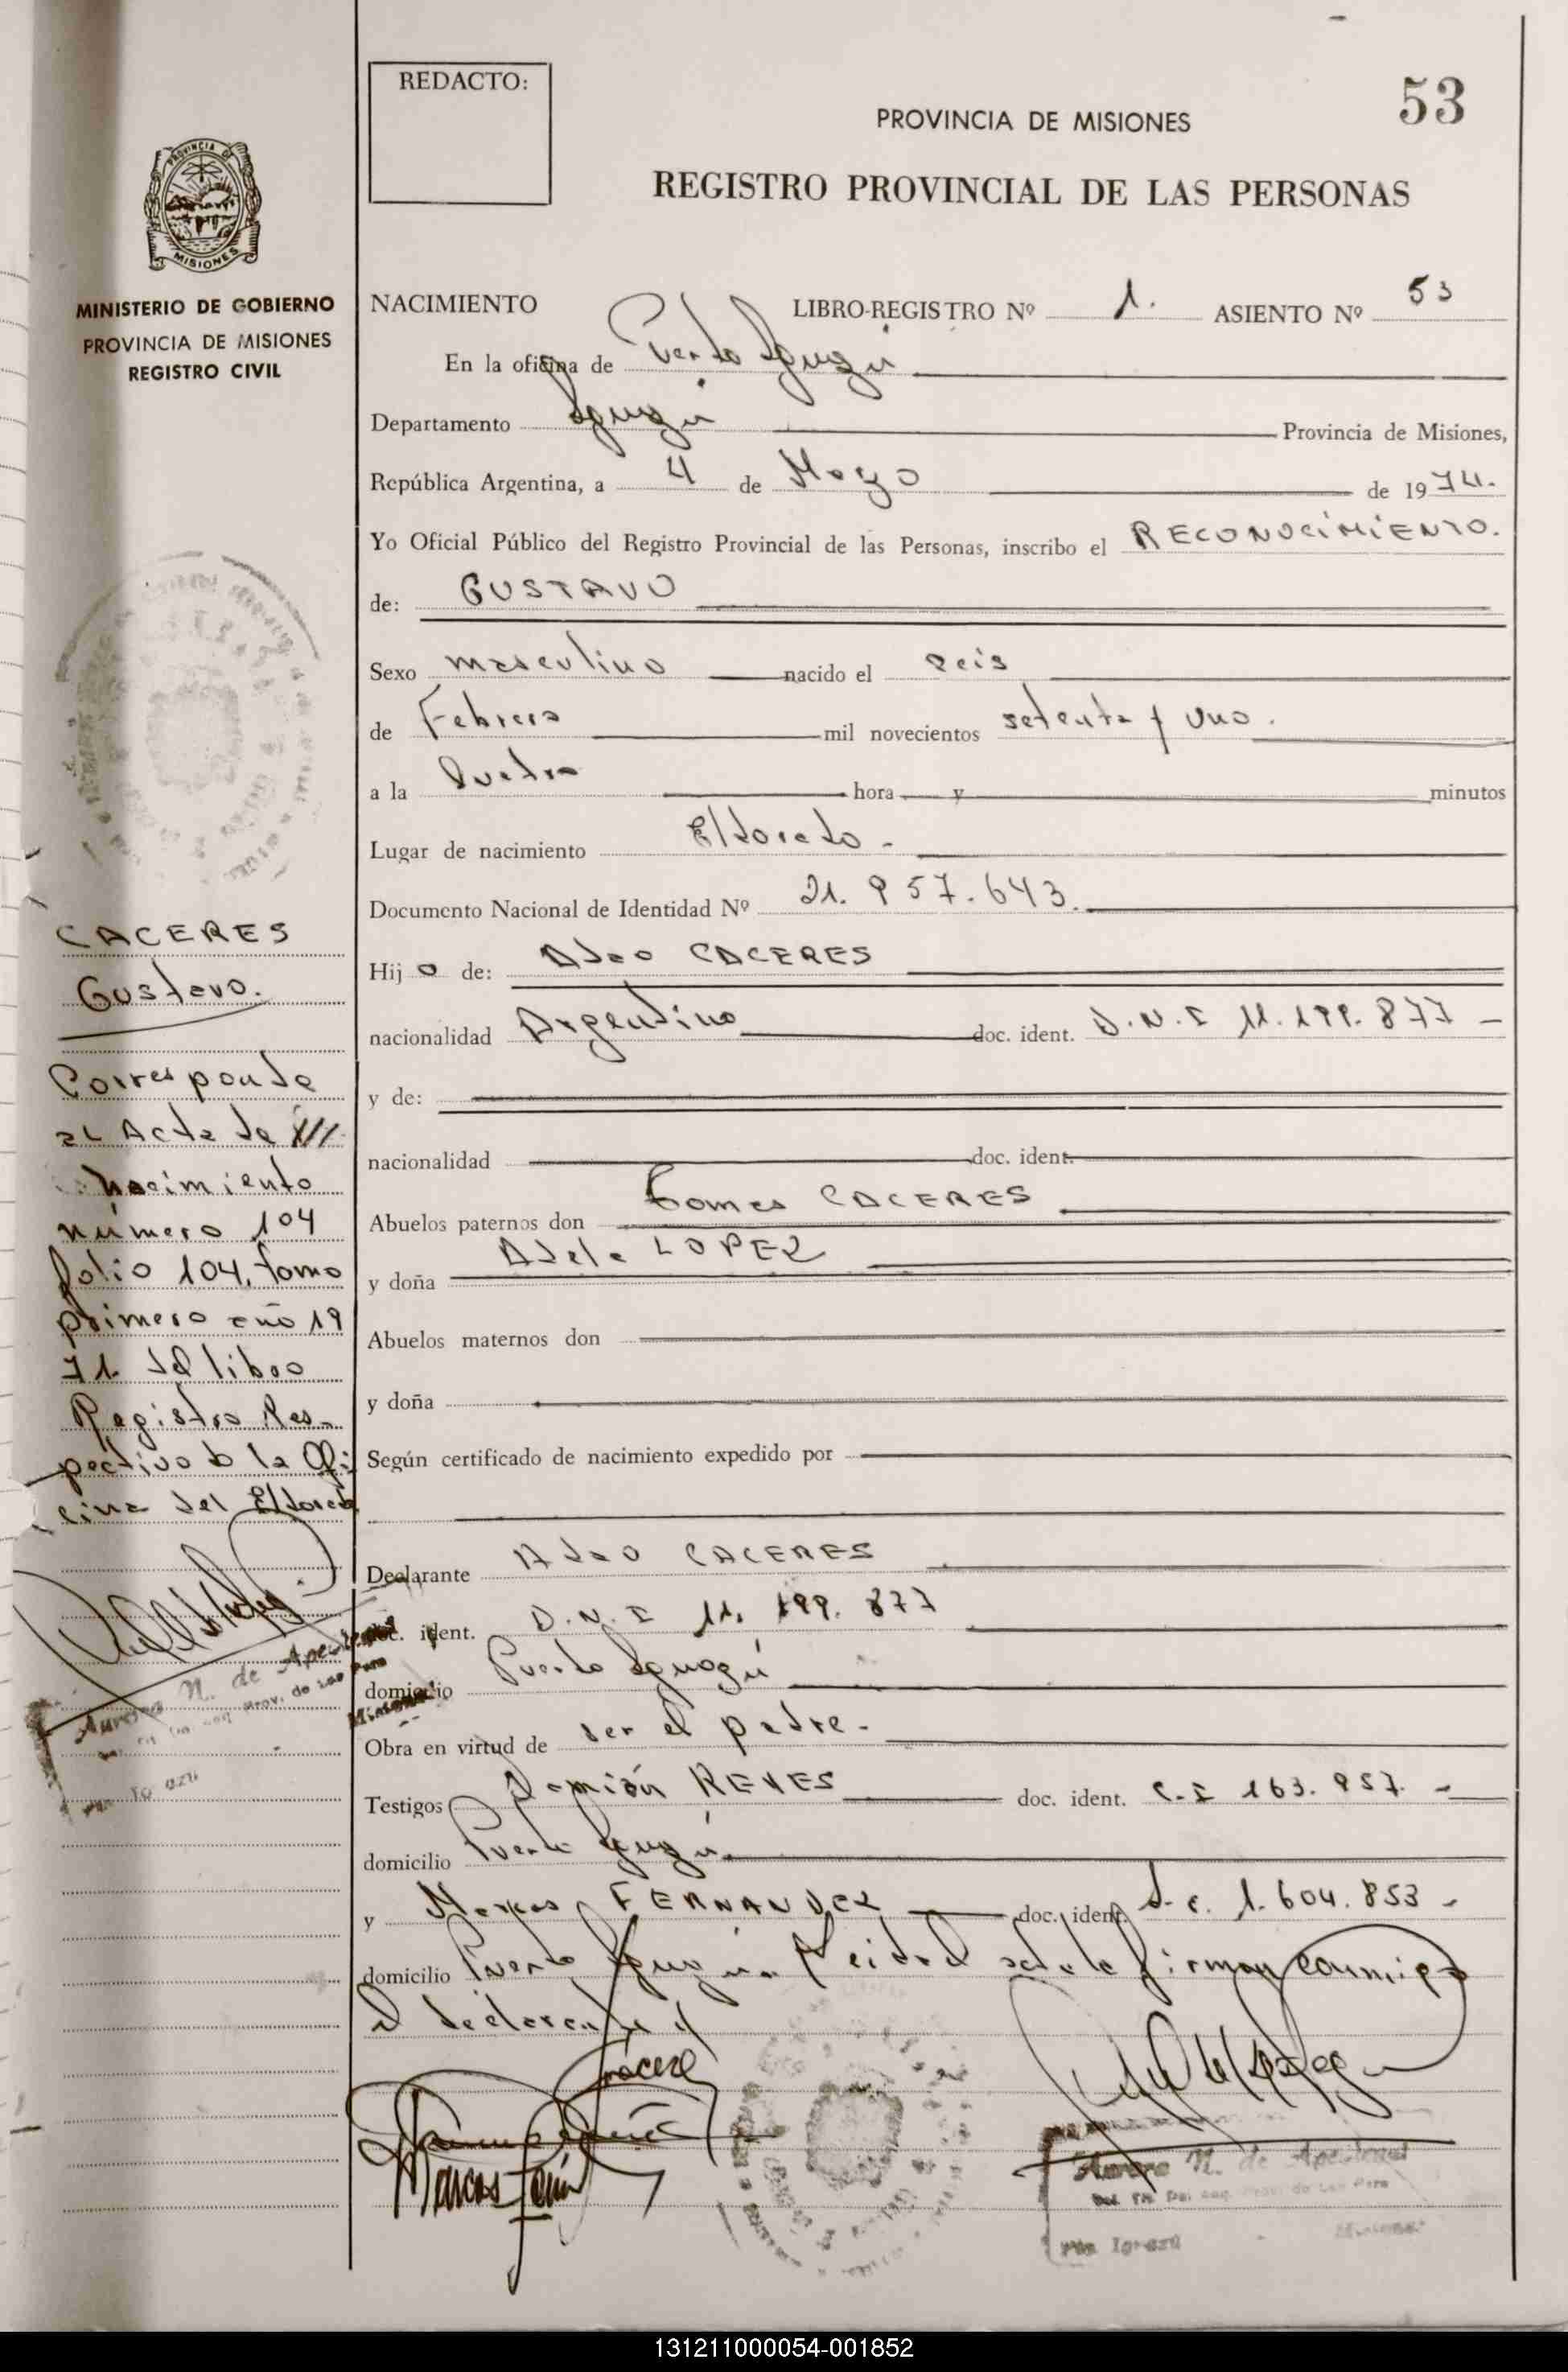 REDACTO:
PROVINCIA DE MISIONES
53
REGISTRO PROVINCIAL DE LAS PERSONAS
PROVINCIA DE
MISIONES
MINISTERIO DE GOBIERNO
PROVINCIA DE MISIONES
REGISTRO CIVIL
NACIMIENTO LIBRO-REGISTRO Nº 1. ASIENTO Nº 53
En la oficina de Puerto Iguazú
Departamento Iguazú Provincia de Misiones,
República Argentina, a 4 de Mayo de 1974.
Yo Oficial Público del Registro Provincial de las Personas, inscribo el RECONOCIMIENTO.
de: GUSTAVO
Sexo masculino nacido el seis
de Febrero mil novecientos setenta y uno.
a la Cuatro hora y minutos
Lugar de nacimiento Eldorado -
Documento Nacional de Identidad Nº 21.957.643.
Hijo de: Aldo CACERES
nacionalidad Argentino doc. ident. D.N.I 11.199.877 -
y de:
nacionalidad doc. ident.
Abuelos paternos don Tomas CACERES
y doña Adela LOPEZ
Abuelos maternos don
y doña
Según certificado de nacimiento expedido por
Declarante Aldo CACERES
doc. ident. D.N.I 11.199.877
domicilio Puerto Iguazú
Obra en virtud de ser el padre.
Testigos Damián REYES doc. ident. C.I 163.957. -
domicilio Puerto Iguazú
y Marcos FERNANDEZ doc. ident. L.E. 1.604.853 -
domicilio Puerto Iguazú. Leida el acta la firman conmigo
el declarante y
Cácere
Marcos
Aurora N. de
Pto Iguazú
CACERES
Gustavo.
Corresponde
al Acta de
nacimiento
número 104
folio 104, tomo
primero año 19
71 del libro
Registro Res-
pectivo de la Ofi
cina del Eldorado
Aurora N. de
131211000054-001852